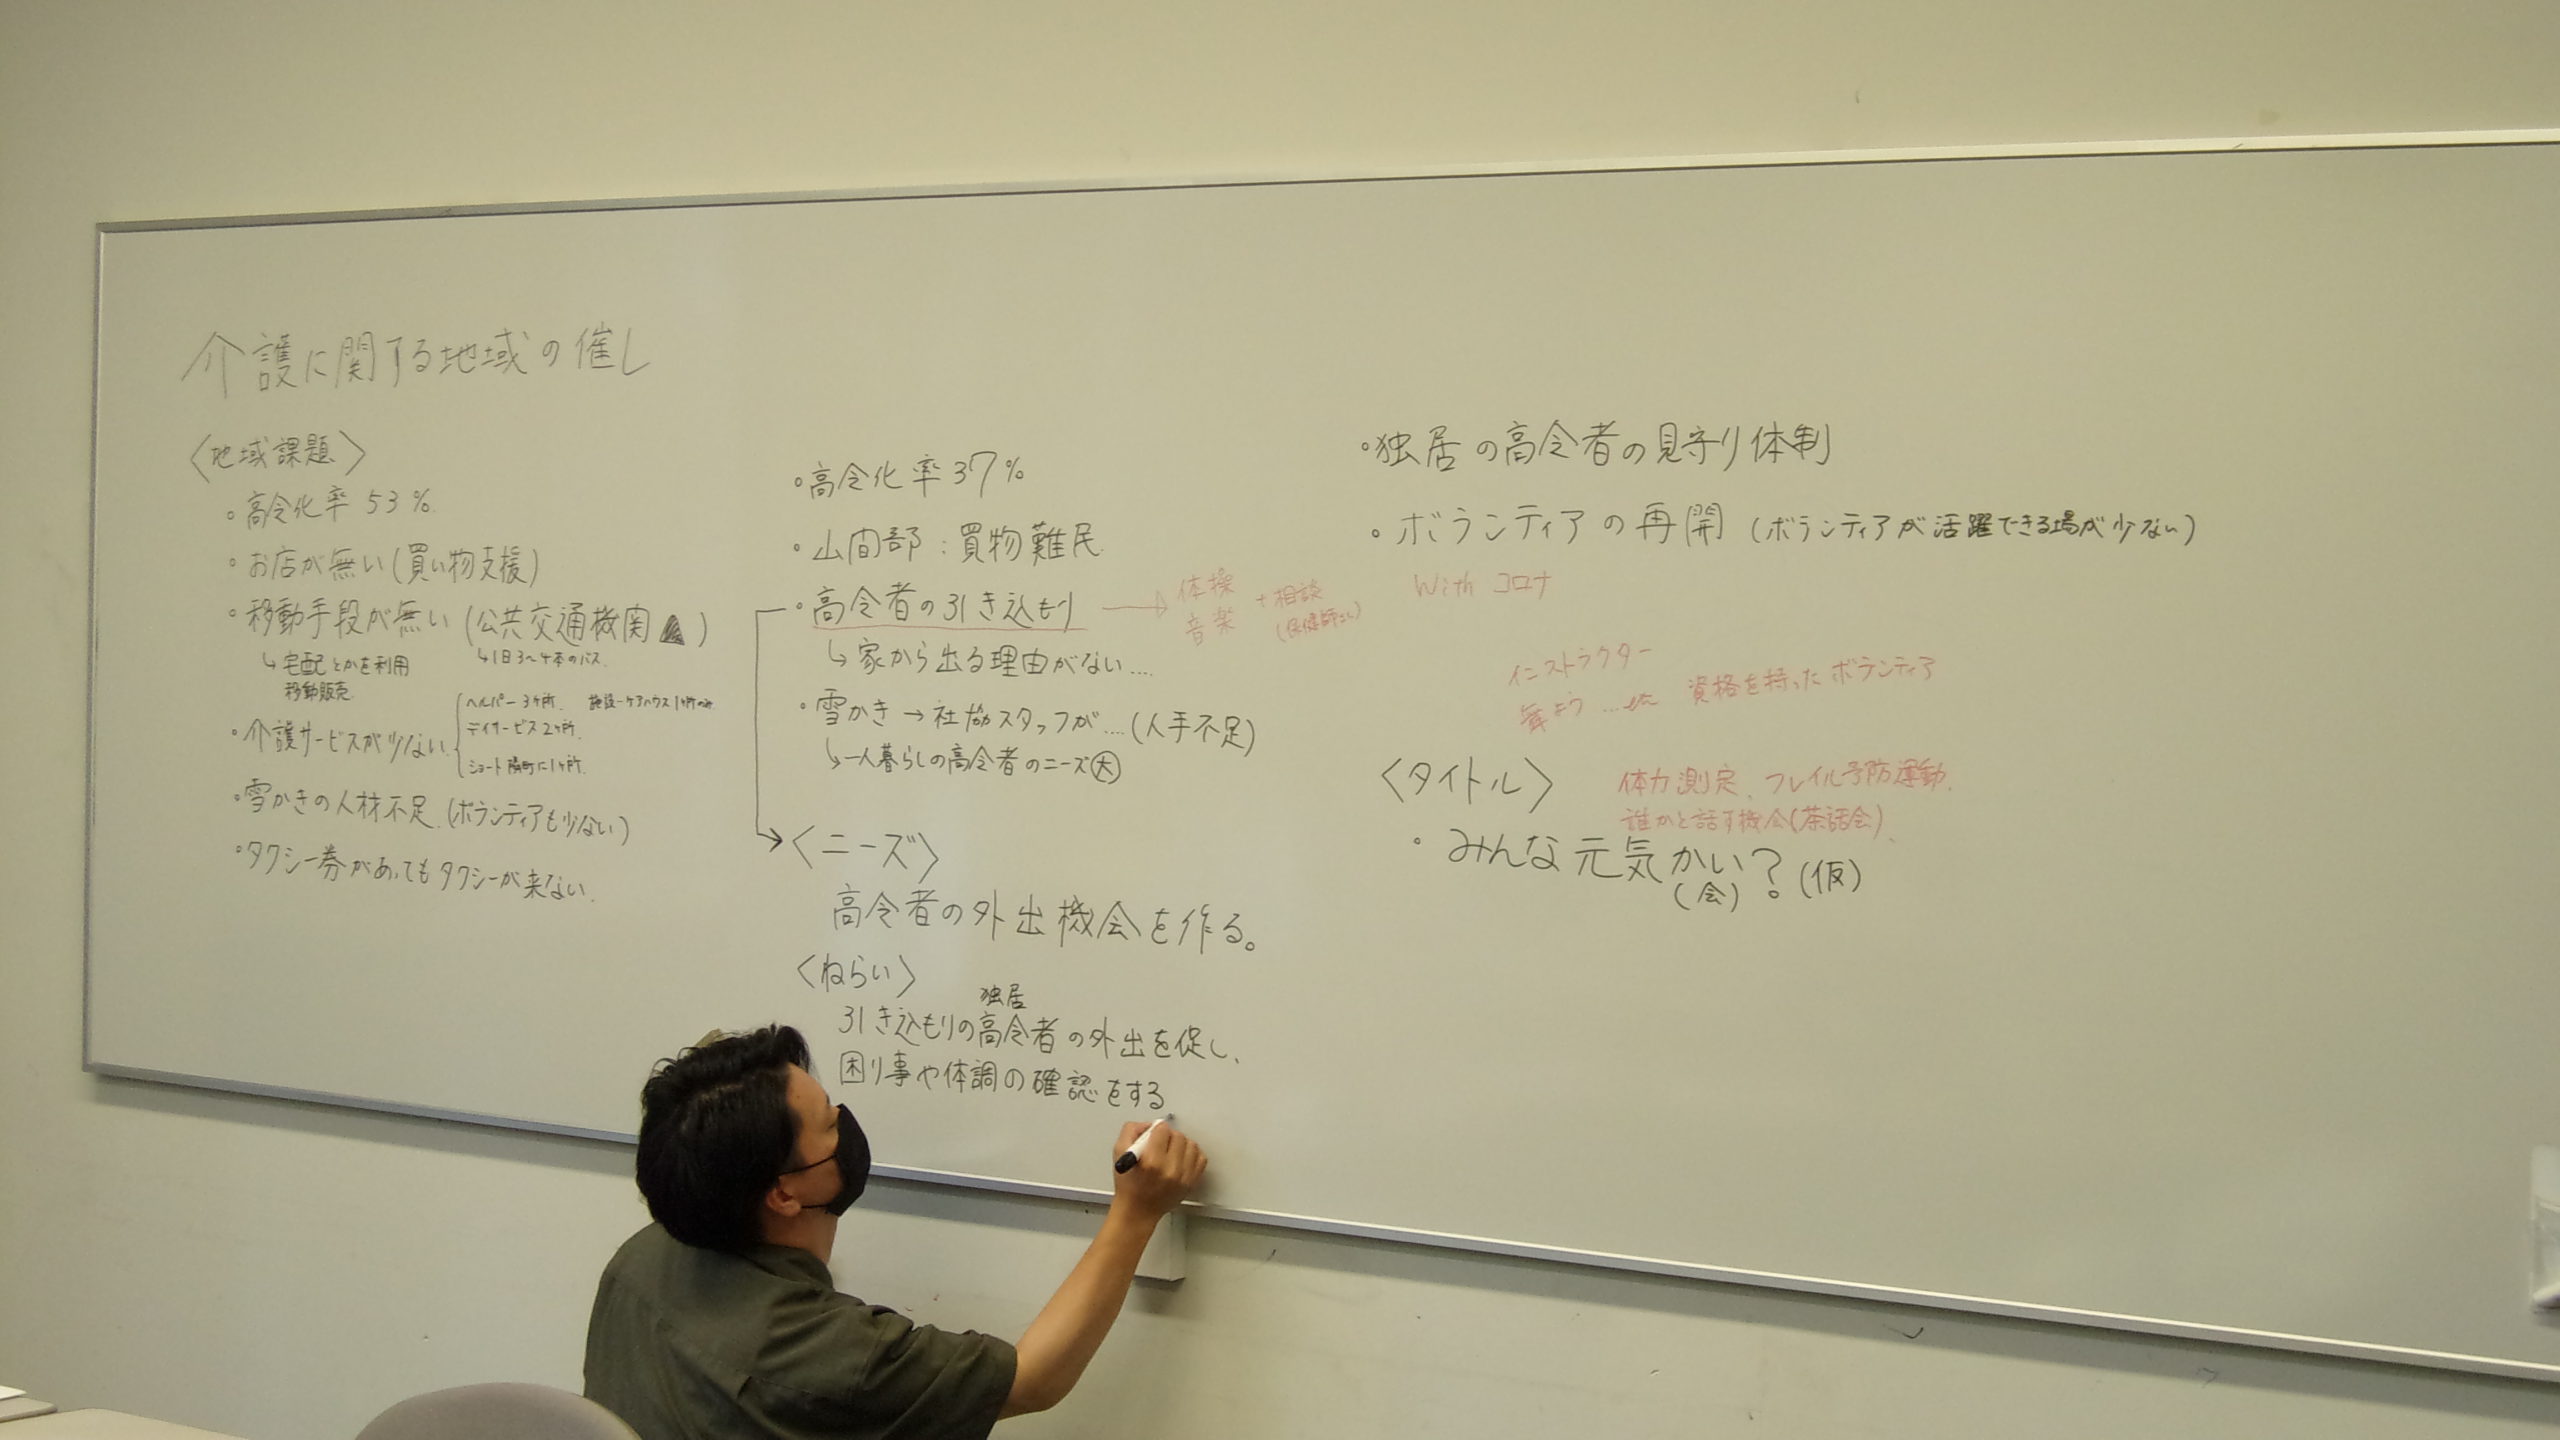 介護に関する地域の催し
〈地域課題〉
・高令化率 53%
・お店が無い(買い物支援)
・移動手段が無い(公共交通機関▲)
↳宅配とかを利用
移動販売
↳1日3〜4本のバス
・介護サービスが少ない
ヘルパー3ヶ所. 施設-ケアハウス1ヶ所のみ
デイサービス2ヶ所.
ショート隣町に1ヶ所.
・雪かきの人材不足.(ボランティアも少ない)
・タクシー券があってもタクシーが来ない.
・高令化率37%
・山間部:買物難民
・高令者の引き込もり→体操 音楽 +相談(保健師さん)
↳家から出る理由がない....
・雪かき→社協スタッフが....(人手不足)
↳一人暮らしの高令者のニーズ大
〈ニーズ〉
高令者の外出機会を作る。
〈ねらい〉
独居
引き込もりの高令者の外出を促し、
困り事や体調の確認をする
・独居の高令者の見守り体制
・ボランティアの再開(ボランティアが活躍できる場が少ない)
With コロナ
インストラクター
舞よう...etc 資格を持ったボランティア
〈タイトル〉
体力測定、フレイル予防運動.
誰かと話す機会(茶話会)、
・みんな元気かい?(仮)
(会)